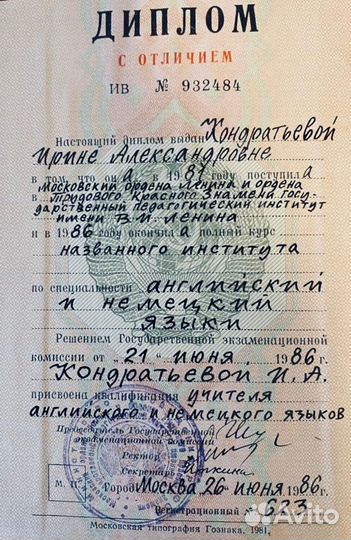 ДИПЛОМ
С ОТЛИЧИЕМ
ИВ № 932484
Настоящий диплом выдан Кондратьевой
Ирине Александровне
в том, что он а в 1981 поступил а
Московский ордена Ленина и ордена
в Трудового Красного Знамени госу-
дарственный педагогический институт
имени В.И. Ленина
и в 1986 году окончил а полный курс
названного института
по специальности английский
и немецкий
языки
Решением Государственной экзаменационной
комиссии от "21" июня 1986 г.
Кондратьевой И. А.
присвоена квалификация учителя
английского и немецкого языков
Председатель Государственной
экзаменационной комиссии
Ректор
Секретарь
М. П. Город Москва 26 июня 1986 г.
Регистрационный № 623
Московская типография Гознака, 1981.
Avito